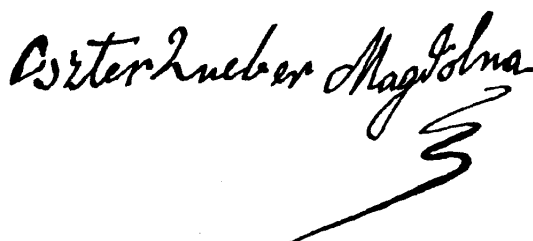 Oszterhueber Magdolna